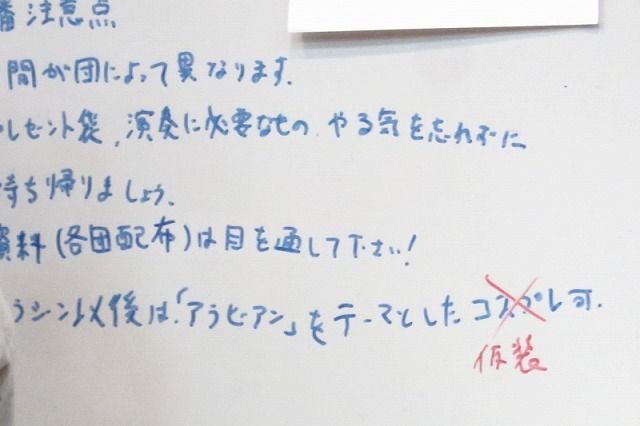 番注意点
間が団によって異なります.
レゼント袋,演奏に必要なもの.やる気を忘れずに
持ち帰りましょう.
資料(各団配布)は目を通して下さい!
ラシント以後は「アラビアン」をテーマとしたコスプレ可.
仮装